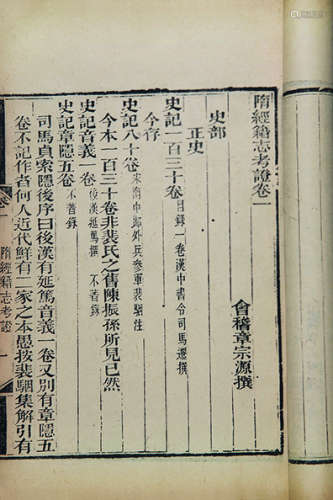 隋經籍志考證卷一
會稽章宗源撰
史部
正史
史記一百三十卷目錄一卷漢中書令司馬遷撰
今存
史記八十卷宋南中郎外兵參軍裴駰注
今本一百三十卷非裴氏之舊陳振孫所見已然
史記音義一卷後漢延篤撰不著錄
史記章隱五卷不著錄
司馬貞索隱後序曰後漢有延篤音義一卷又別有章隱五
卷不記作者何人近代鮮有二家之本愚按裴駰集解引有
隋經籍志考證